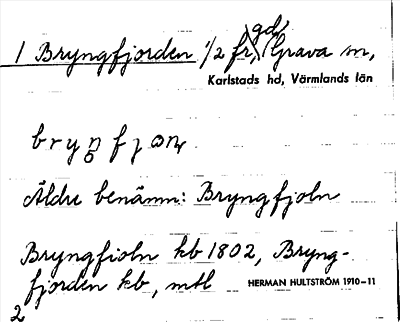 1 Bryngfjorden 1/2 fr, gd, Grava sn,
Karlstads hd, Värmlands län
Äldre benämn: Bryngfjoln
Bryngfioln kb 1802, Bryng-
fjorden kb, mtl
HERMAN HULTSTRÖM 1910–11
2